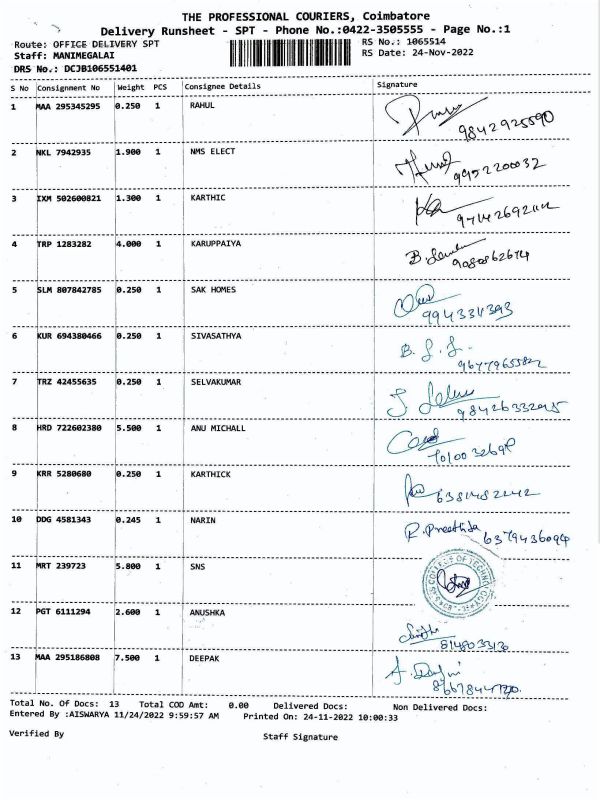 THE PROFESSIONAL COURIERS, Coimbatore
Delivery Runsheet - SPT - Phone No.:0422-3505555 - Page No.:1
Route: OFFICE DELIVERY SPT RS No.: 1065514
Staff: MANIMEGALAI RS Date: 24-Nov-2022
DRS No.: DCJB106551401
S No Consignment No Weight PCS Consignee Details Signature
1 MAA 295345295 0.250 1 RAHUL 9842925590
2 NKL 7942935 1.900 1 NMS ELECT 9952200032
3 IXM 502600821 1.300 1 KARTHIC
4 TRP 1283282 4.000 1 KARUPPAIYA
5 SLM 807842785 0.250 1 SAK HOMES
6 KUR 694380466 0.250 1 SIVASATHYA
7 TRZ 42455635 0.250 1 SELVAKUMAR
8 HRD 722602380 5.500 1 ANU MICHALL
9 KRR 5280680 0.250 1 KARTHICK
10 DDG 4581343 0.245 1 NARIN 6379436094
11 MRT 239723 5.800 1 SNS
12 PGT 6111294 2.600 1 ANUSHKA
13 MAA 295186808 7.500 1 DEEPAK
Total No. Of Docs: 13 Total COD Amt: 0.00 Delivered Docs: Non Delivered Docs:
Entered By :AISWARYA 11/24/2022 9:59:57 AM Printed On: 24-11-2022 10:00:33
Verified By Staff Signature